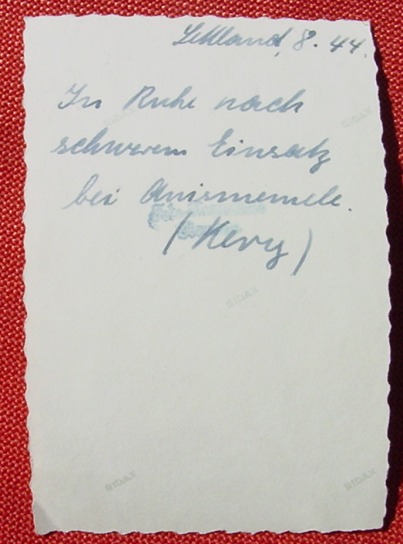 Lettland, 8. 44.
In Ruhe nach
schwerem Einsatz
bei
(Kery)
SIDAX
SIDAX
SIDAX
SIDAX